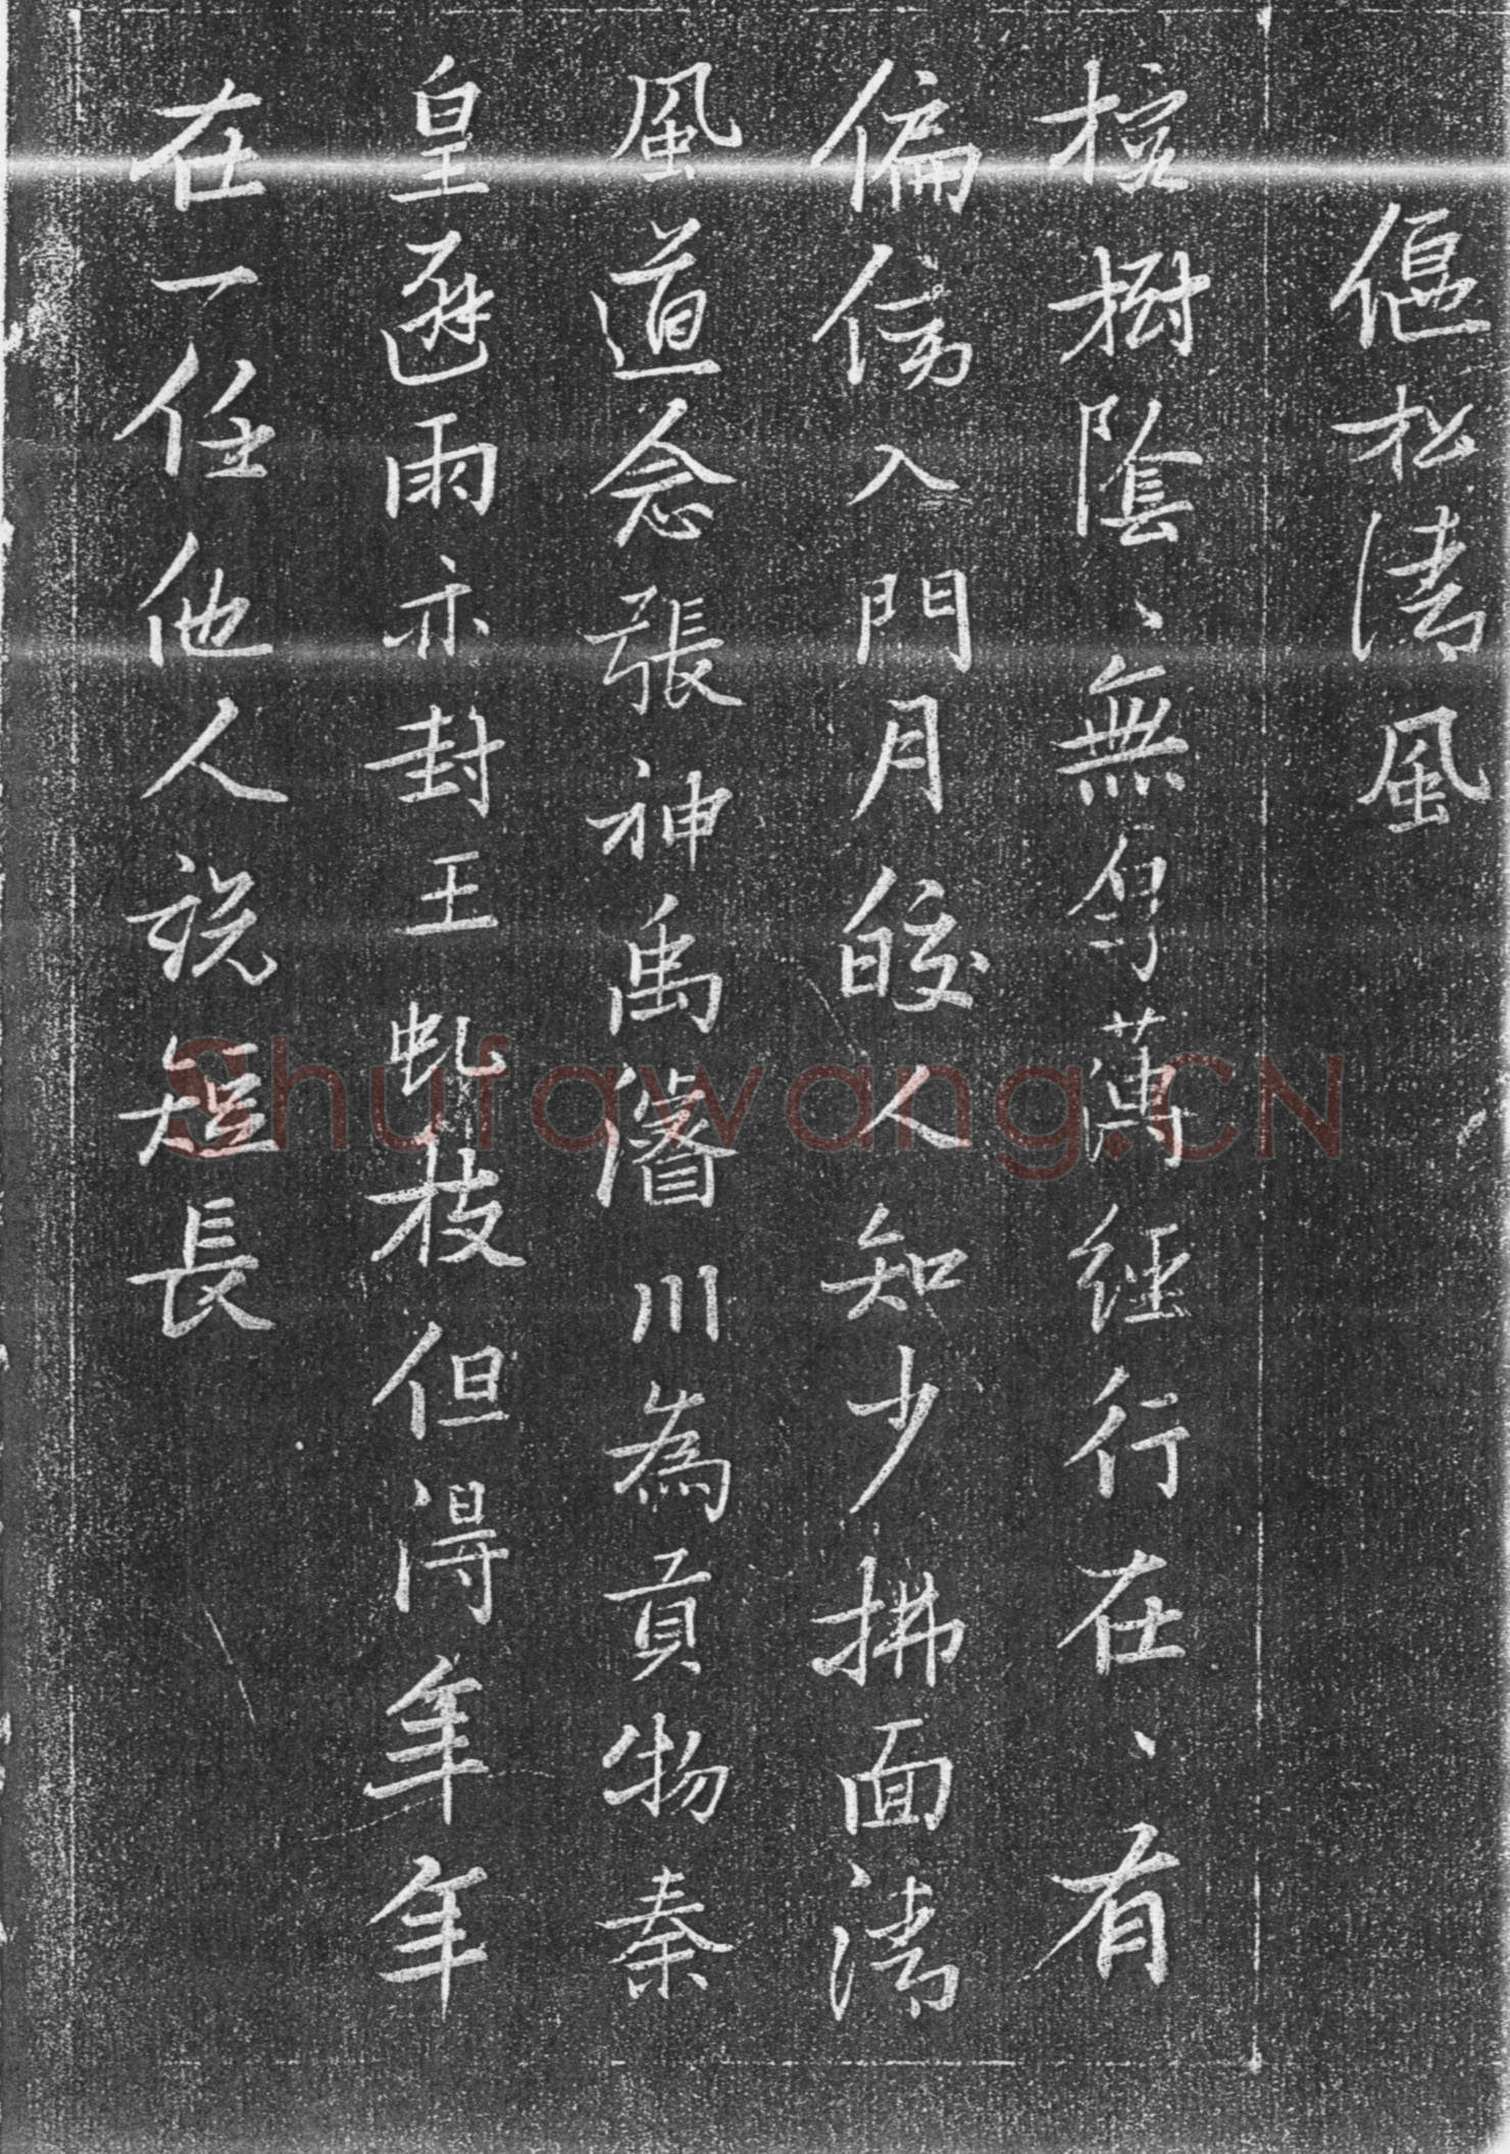 偃松清風
松樹陰、無厚薄經行在、有
偏傍入門月皎人知少拂面清
風道念張神禹濬川為貢物秦
皇遜雨亦封王虬枝但得年年
在一任他人說短長
Shufawang.CN